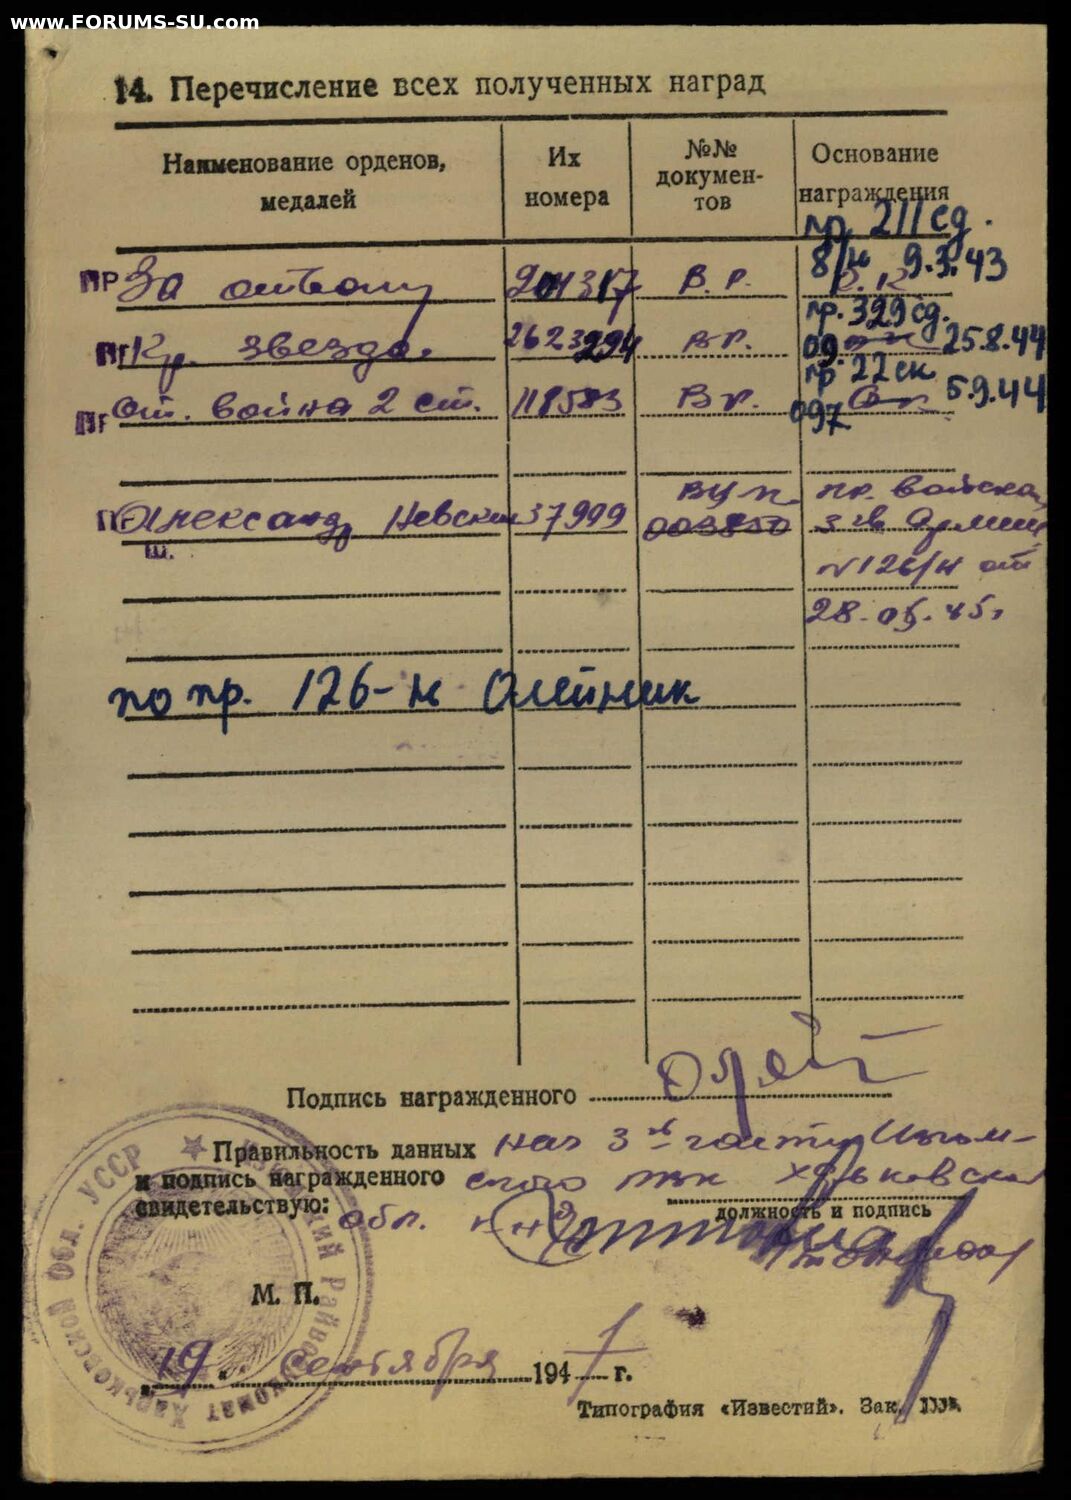 www.FORUMS-SU.com
14. Перечисление всех полученных наград
Наименование орденов, медалей
Их номера
№№ документов
Основание награждения
пр. 211 сд.
8/н 9.3.43
ПР За отвагу 204317 В. Р.
пр. 329 сд.
Кр. звезда. 2623294 ВР. 09 25.8.44
пр 22 ск 5.9.44
От. война 2 ст. 118583 Вр. 097
ВЦ п. пр. войскам
Александр Невский 37999 003850 3 гв Армии
№126/н от
28.05.45г
по пр. 126-н Олейник
Подпись награжденного
Правильность данных и подпись награжденного свидетельствую:
нач 3й части
РВК Харьковской
обл.
должность и подпись
М. П.
"19" Сентября 1947 г.
Типография «Известий». Зак.
УССР
Райвоенкомат Харьковской Обл.